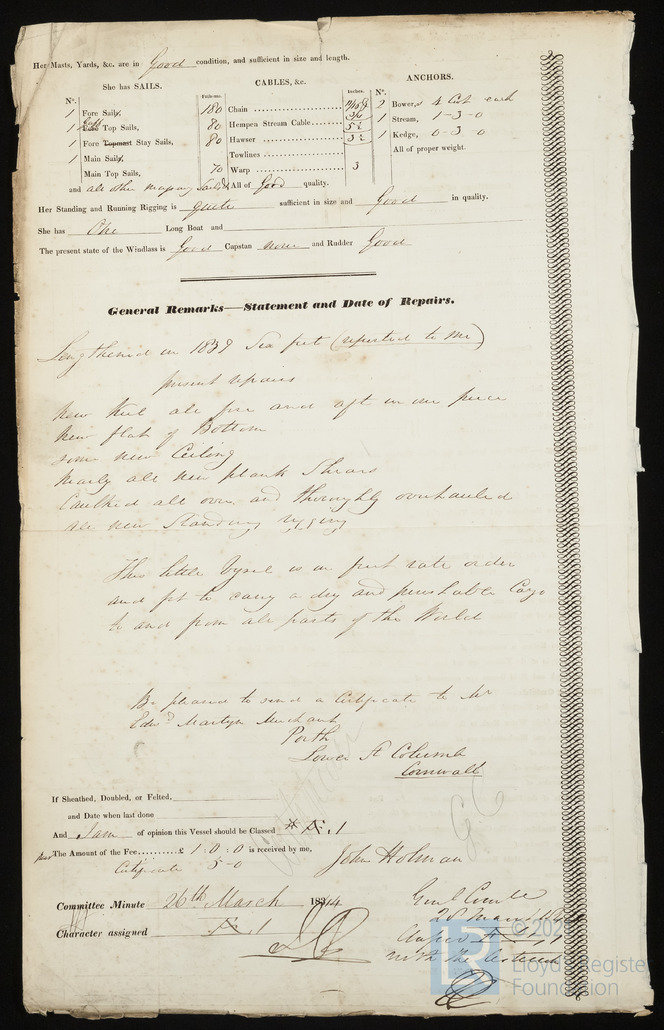 Her Masts, Yards, &c. are in Good condition, and sufficient in size and length.
She has SAILS.
CABLES, &c.
ANCHORS.
Nº.
Fathoms.
Inches.
Nº.
1 Fore Sails,
Gaff Top Sails,
1 Fore Topmast Stay Sails,
1 Main Sails,
Main Top Sails,
and all other Sails
180 Chain
80 Hempen Stream Cable
80 Hawser
Towlines
70 Warp 3
All of Good quality.
2 Bowers, 4 Cwt each
1 Stream, 1-3-0
1 Kedge, 0-3-0
All of proper weight.
Her Standing and Running Rigging is quite sufficient in size and Good in quality.
She has One Long Boat and
The present state of the Windlass is Good Capstan none and Rudder Good
General Remarks—Statement and Date of Repairs.
Lengthened in 1839 Six feet (reported to me)
present repairs
New Keel all fore and aft in one piece
New flat of Bottom
some new Ceiling
Nearly all new plank Shears
Caulked all over and thoroughly overhauled
all new Standing rigging
This little Vessel is in first rate order
and fit to carry a dry and perishable Cargo
to and from all parts of the World
Be pleased to send a Certificate to Mr
Edwd Martyn Merchant
Porth
Lower St Columb
Cornwall
If Sheathed, Doubled, or Felted,
and Date when last done
And I am of opinion this Vessel should be Classed * Æ.1
The Amount of the Fee.......... £ 1 : 0 : 0 is received by me,
Certificate 5-0
John Holman
Committee Minute 26th March 1844
Character assigned Æ.1
Genl Comtee
with the Asterisk
© 202
LR
Lloyd's Register
Foundation